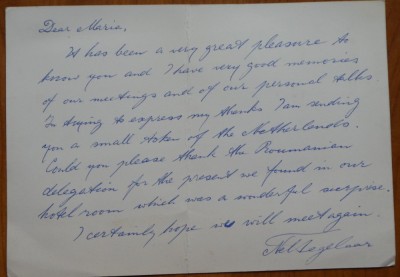 Dear Maria,
It has been a very great pleasure to
know you and I have very good memories
of our meetings and of our personal talks
In trying to express my thanks I am sending
you a small token of the Netherlands.
Could you please thank the Roumanian
delegation for the present we found in our
hotel room which was a wonderful surprise.
I certainly hope we will meet again.